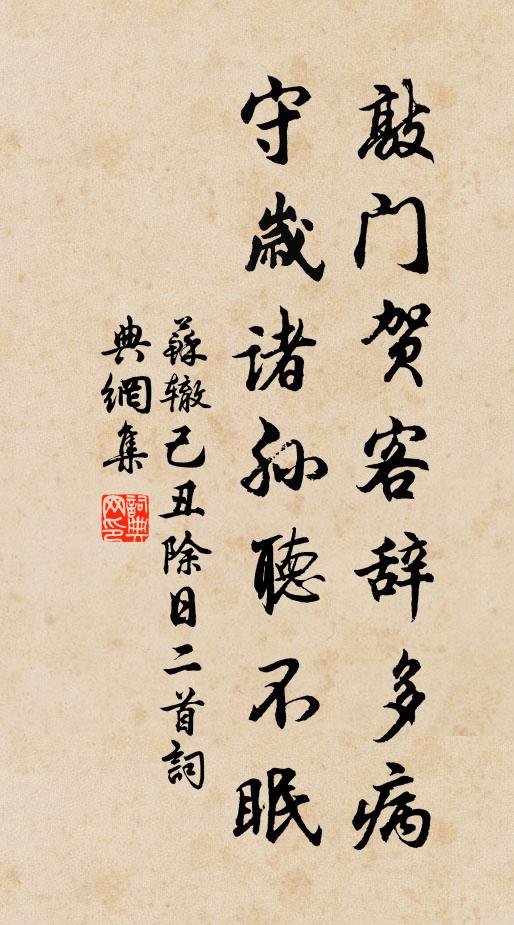 敲门贺客辞多病
守歳诸孙聽不眠
蘇辙己丑除日二首詞
典網集
詞典网印